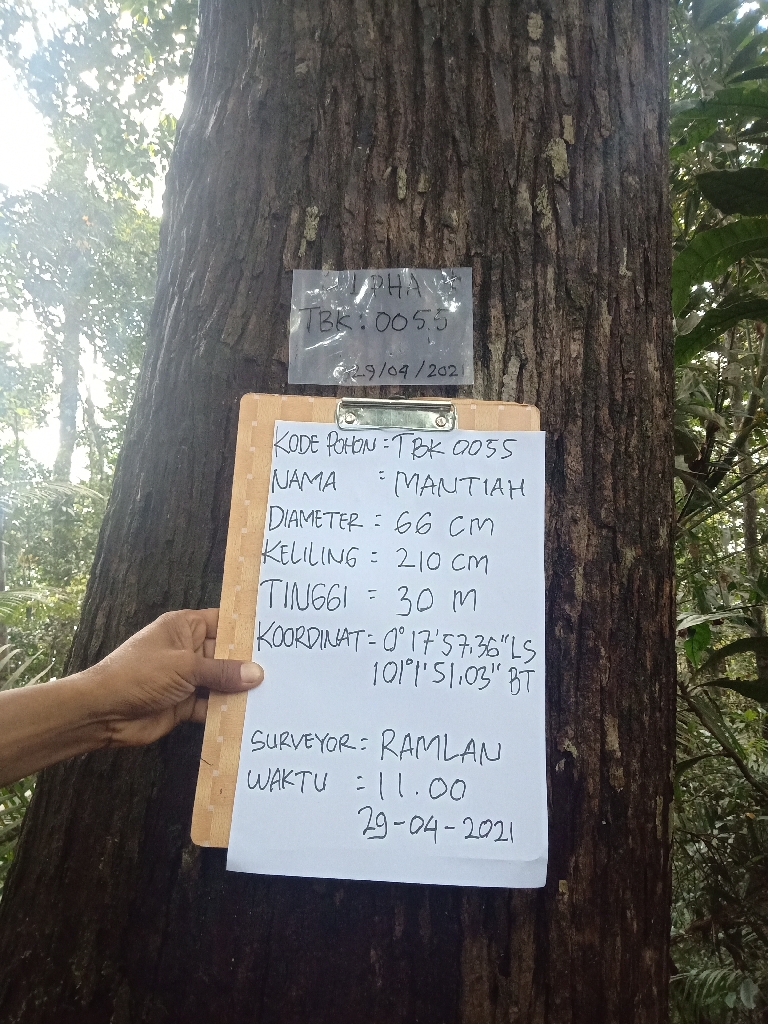 TBK: 0055
29/04/2021
KODE POHON = TBK 0055
NAMA = MANTIAH
DIAMETER = 66 CM
KELILING = 210 CM
TINGGI = 30 M
KOORDINAT = 0°17'57.36" LS
101°1'51.03" BT
SURVEYOR = RAMLAN
WAKTU = 11.00
29-04-2021